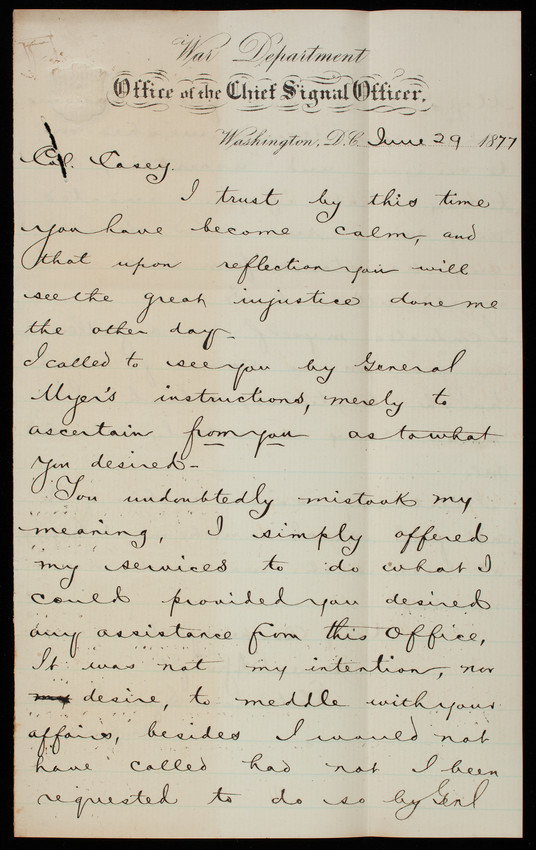 War Department
Office of the Chief Signal Officer,
Washington, D.C. June 29 1877
Col. Casey.
I trust by this time
you have become calm, and
that upon reflection you will
see the great injustice done me
the other day-
I called to see you by General
Myer's instructions, merely to
ascertain from you as to what
you desired-
You undoubtedly mistook my
meaning, I simply offered
my services to do what I
could provided you desired
any assistance from this Office,
It was not my intention, nor
my desire, to meddle with your
affairs, besides I would not
have called had not I been
requested to do so by Genl